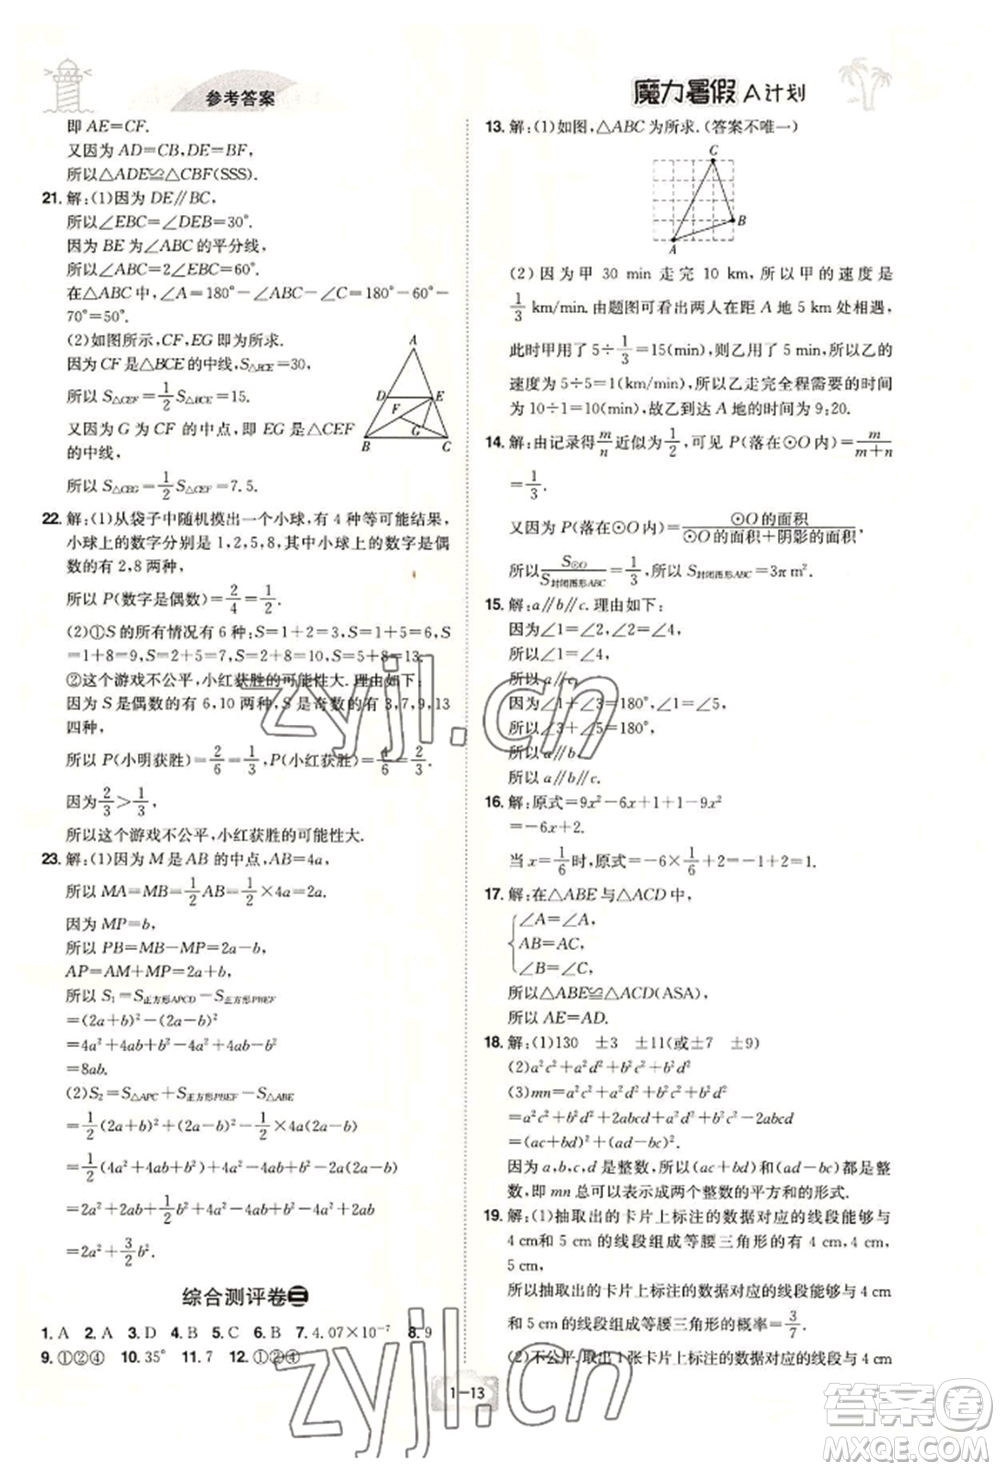 参考答案
即 AE=CF.
又因为 AD=CB,DE=BF,
所以△ADE≌△CBF(SSS).
21. 解:(1)因为 DE∥BC,
所以∠EBC=∠DEB=30°.
因为 BE 为∠ABC 的平分线,
所以∠ABC=2∠EBC=60°.
在△ABC 中,∠A=180°-∠ABC-∠C=180°-60°-
70°=50°.
(2)如图所示,CF,EG 即为所求.
因为 CF 是△BCE 的中线,S△BCE=30,
所以 S△CEF=1/2 S△BCE=15.
又因为 G 为 CF 的中点,即 EG 是△CEF
的中线,
所以 S△CEG=1/2 S△CEF=7.5.
A
D
E
F
G
B
C
22. 解:(1)从袋子中随机摸出一个小球,有 4 种等可能结果,
小球上的数字分别是 1,2,5,8,其中小球上的数字是偶
数的有 2,8 两种,
所以 P(数字是偶数)=2/4=1/2.
(2)①S 的所有情况有 6 种:S=1+2=3,S=1+5=6,
S=1+8=9,S=2+5=7,S=2+8=10,S=5+8=13.
②这个游戏不公平,小红获胜的可能性大.理由如下:
因为 S 是偶数的有 6,10 两种,S 是奇数的有 3,7,9,13
四种,
所以 P(小明获胜)=2/6=1/3,P(小红获胜)=4/6=2/3.
因为2/3>1/3,
所以这个游戏不公平,小红获胜的可能性大.
23. 解:(1)因为 M 是 AB 的中点,AB=4a,
所以 MA=MB=1/2 AB=1/2×4a=2a.
因为 MP=b,
所以 PB=MB-MP=2a-b,
AP=AM+MP=2a+b.
所以 S₁=S正方形APCD-S正方形PBEF
=(2a+b)²-(2a-b)²
=4a²+4ab+b²-4a²+4ab-b²
=8ab.
(2)S₂=S△APC+S正方形PBEF-S△ABE
=1/2(2a+b)²+(2a-b)²-1/2×4a(2a-b)
=1/2(4a²+4ab+b²)+4a²-4ab+b²-4a²+2ab
=2a²+2ab+1/2b²+4a²-4ab+b²-4a²+2ab
=2a²+3/2b².
综合测评卷二
1. A 2. A 3. D 4. B 5. C 6. B 7. 4.07×10⁻⁷ 8. 9
9. ①②④ 10. 35° 11. 7 12. ①②④
魔力暑假 A计划
13. 解:(1)如图,△ABC 为所求.(答案不唯一)
C
B
A
(2)因为甲 30 min 走完 10 km,所以甲的速度是
1/3 km/min.由题图可看出两人在距 A 地 5 km处相遇,
此时甲用了 5÷1/3=15(min),则乙用了 5 min,所以乙的
速度为 5÷5=1(km/min),所以乙走完全程需要的时间
为 10÷1=10(min),故乙到达 A 地的时间为 9:20.
14. 解:由记录得m/n近似为1/2,可见 P(落在⊙O 内)=m/(m+n)
=1/3.
又因为 P(落在⊙O 内)=⊙O的面积/(⊙O的面积+阴影的面积),
所以S⊙O/S封闭图形ABC=1/3,所以 S封闭图形ABC=3π m².
15. 解:a∥b∥c.理由如下:
因为∠1=∠2,∠2=∠4,
所以∠1=∠4,
所以 a∥c.
因为∠1+∠3=180°,∠1=∠5,
所以∠3+∠5=180°,
所以 a∥b.
所以 a∥b∥c.
16. 解:原式=9x²-6x+1+1-9x²
=-6x+2.
当 x=1/6时,原式=-6×1/6+2=-1+2=1.
17. 解:在△ABE与△ACD中,
∠A=∠A,
AB=AC,
∠B=∠C,
所以△ABE≌△ACD(ASA),
所以 AE=AD.
18. 解:(1)130 ±3 ±11(或±7 ±9)
(2)a²c²+a²d²+b²c²+b²d²
(3)mn=a²c²+a²d²+b²c²+b²d²
=a²c²+b²d²+2abcd+a²d²+b²c²-2abcd
=(ac+bd)²+(ad-bc)².
因为 a,b,c,d 是整数,所以(ac+bd)和(ad-bc)都是整
数,即 mn 总可以表示成两个整数的平方和的形式.
19. 解:(1)抽取出的卡片上标注的数据对应的线段能够与
4 cm和 5 cm的线段组成等腰三角形的有 4 cm,4 cm,
5 cm,
所以抽取出的卡片上标注的数据对应的线段能够与
4 cm 和 5 cm 的线段组成等腰三角形的概率=3/7.
(2)不公平.取出 1 张卡片上标注的数据对应的线段与
1-13
zyjl.cn
zyjl.cn
答案圈
MXQE.COM